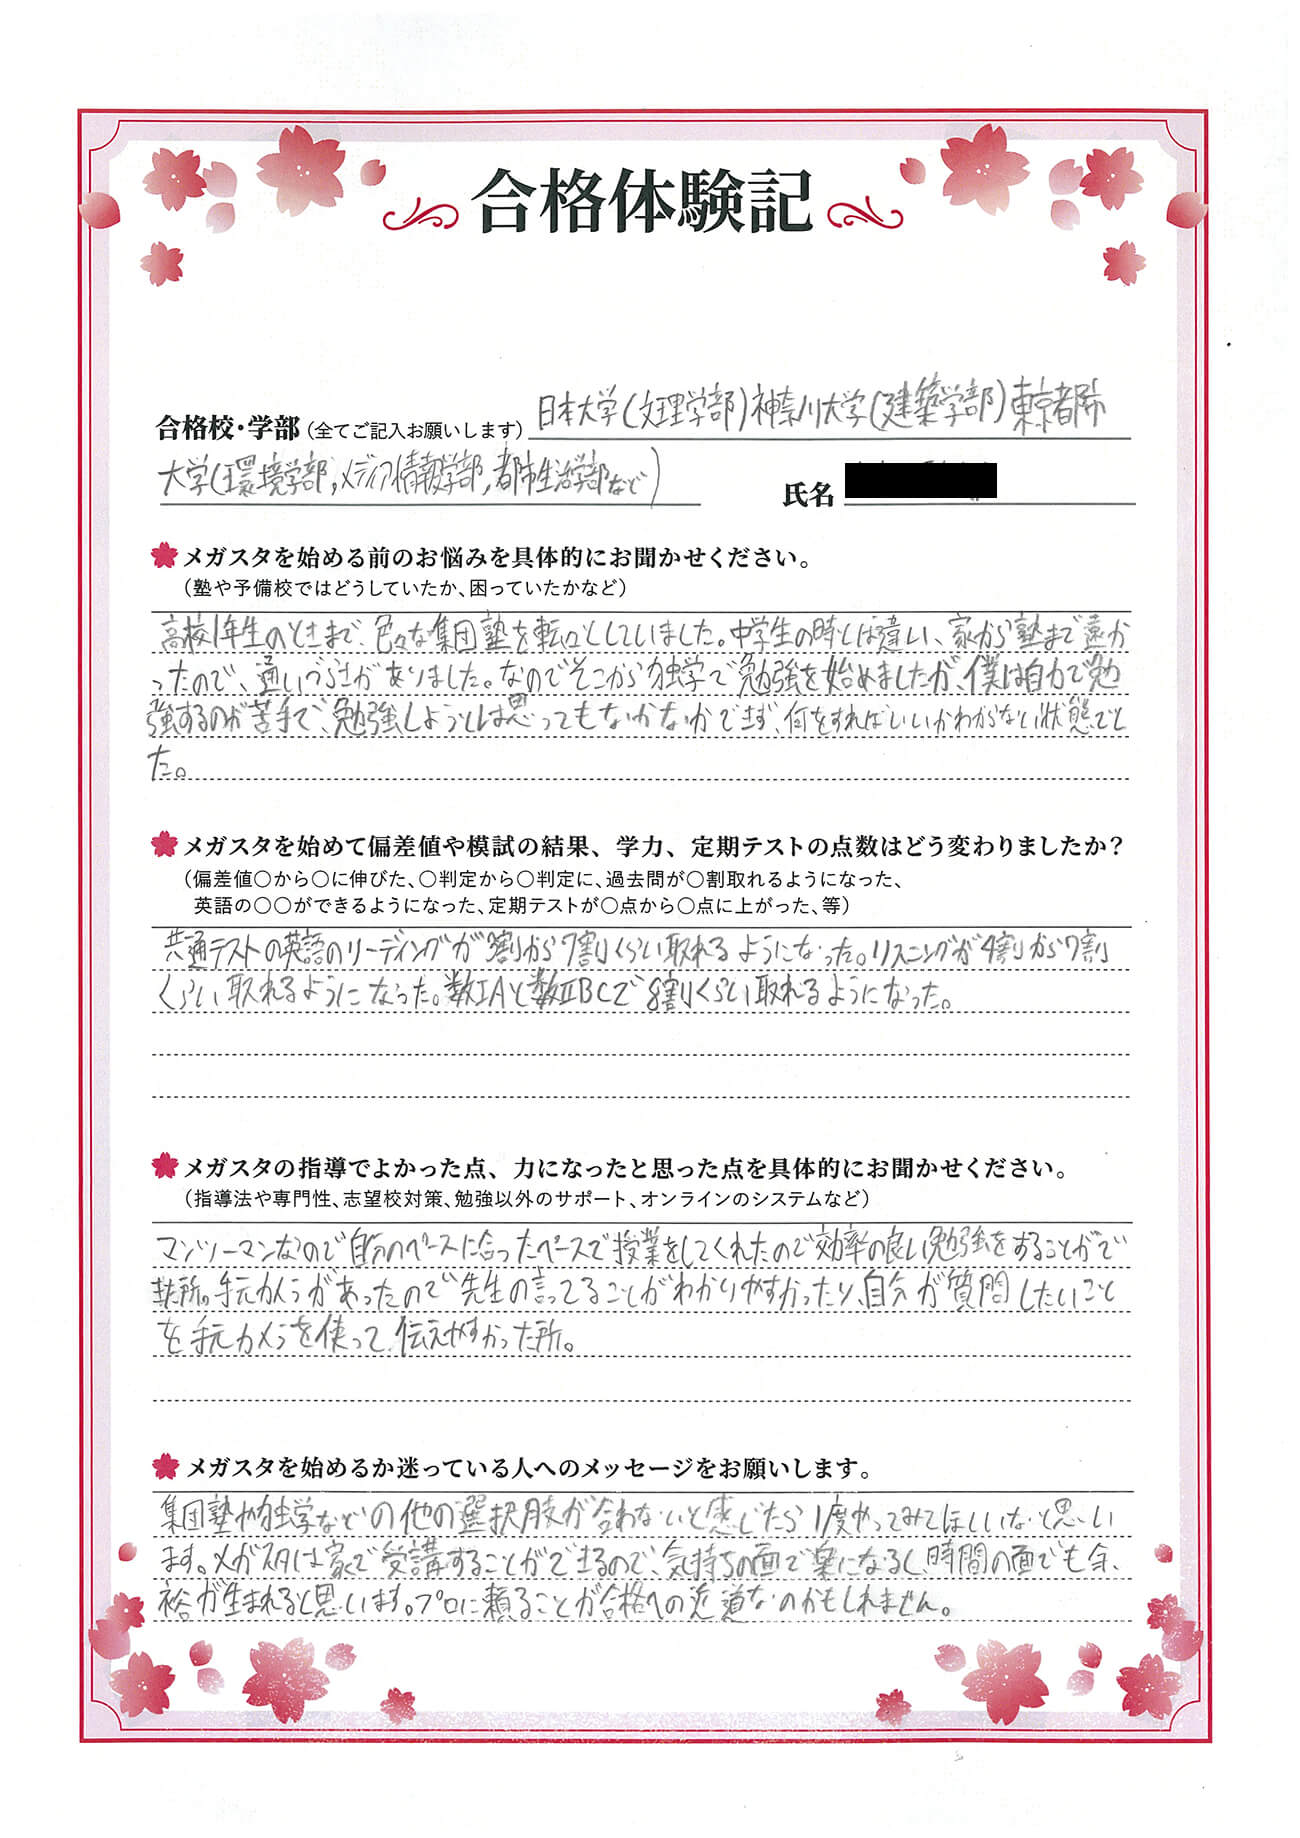 合格体験記
合格校・学部（全てご記入お願いします）日本大学(文理学部)神奈川大学(建築学部)東京都市
大学(環境学部,メディア情報学部,都市生活学部など)
氏名
メガスタを始める前のお悩みを具体的にお聞かせください。
（塾や予備校ではどうしていたか、困っていたかなど）
高校1年生のときまで、色々な集団塾を転々としていました。中学生の時とは違い、家から塾まで遠か
ったので、通いづらさがありました。なのでそこから独学で勉強を始めましたが、僕は自力で勉
強するのが苦手で、勉強しようとは思ってもなかなかできず、何をすればいいかわからない状態でし
た。
メガスタを始めて偏差値や模試の結果、学力、定期テストの点数はどう変わりましたか？
（偏差値〇から〇に伸びた、〇判定から〇判定に、過去問が〇割取れるようになった、
英語の〇〇ができるようになった、定期テストが〇点から〇点に上がった、等）
共通テストの英語のリーディングが3割から7割くらい取れるようになった。リスニングが4割から7割
くらい取れるようになった。数ⅠAと数ⅡBCで8割くらい取れるようになった。
メガスタの指導でよかった点、力になったと思った点を具体的にお聞かせください。
（指導法や専門性、志望校対策、勉強以外のサポート、オンラインのシステムなど）
マンツーマンなので自分のペースに合ったペースで授業をしてくれたので効率の良い勉強をすることがで
きた所。手元カメラがあったので先生の言ってることがわかりやすかったり、自分が質問したいこと
を手元カメラを使って伝えやすかった所。
メガスタを始めるか迷っている人へのメッセージをお願いします。
集団塾や独学などの他の選択肢が合わないと感じたら1度やってみてほしいなと思い
ます。メガスタは家で受講することができるので、気持ちの面で楽になるし、時間の面でも余
裕が生まれると思います。プロに頼ることが合格への近道なのかもしれません。